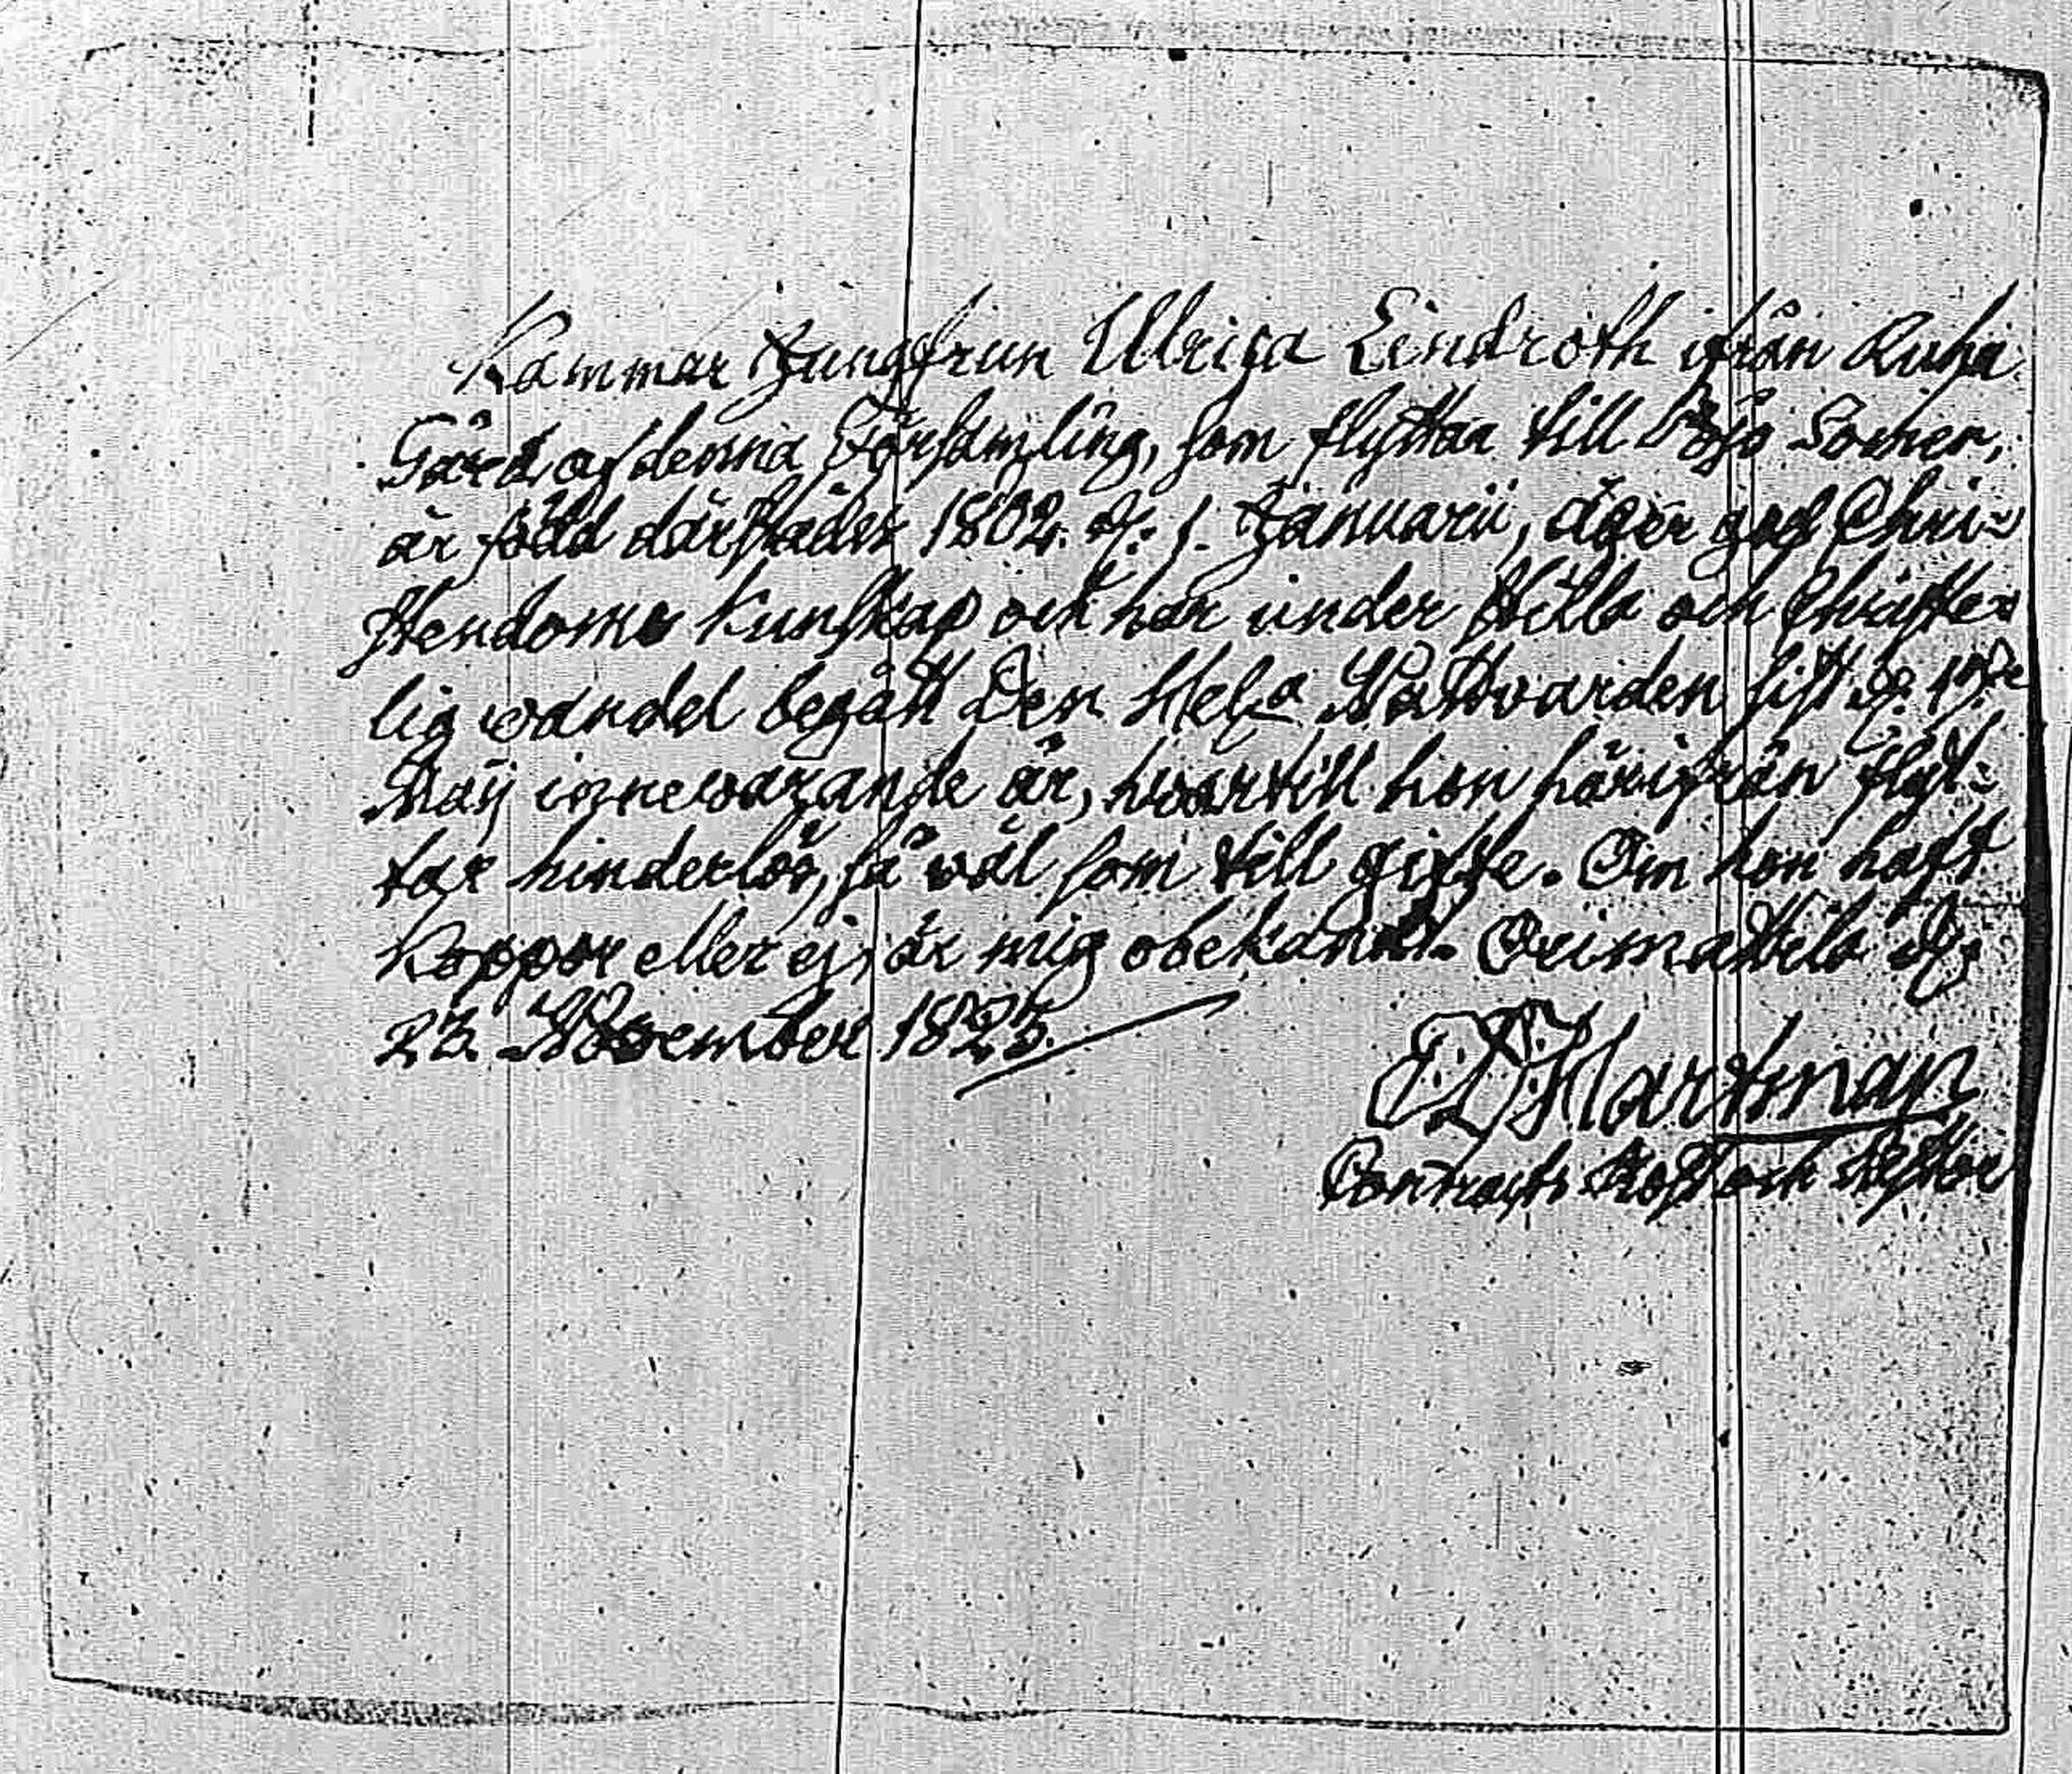 Kammar Jungfrun Ulrica Lindroth ifrån Ruha
Gård af denna Församling, som flyttar till Pojo Socken,
är född därstädes 1802. d. 1. Januarii, äger god Chri-
stendoms kunskap och har under stilla och Christe-
lig wandel begått Den Hel:a Nattvarden sist d.
Maij innewarande år, hwartill hon härifrån flyt-
tar hinderlös, så wäl som till gifte. Om hon haft
Koppor eller ej, är mig obekant. Orimattila d.
23. November 1825.
Hartman
Contracts Prost och Pastor